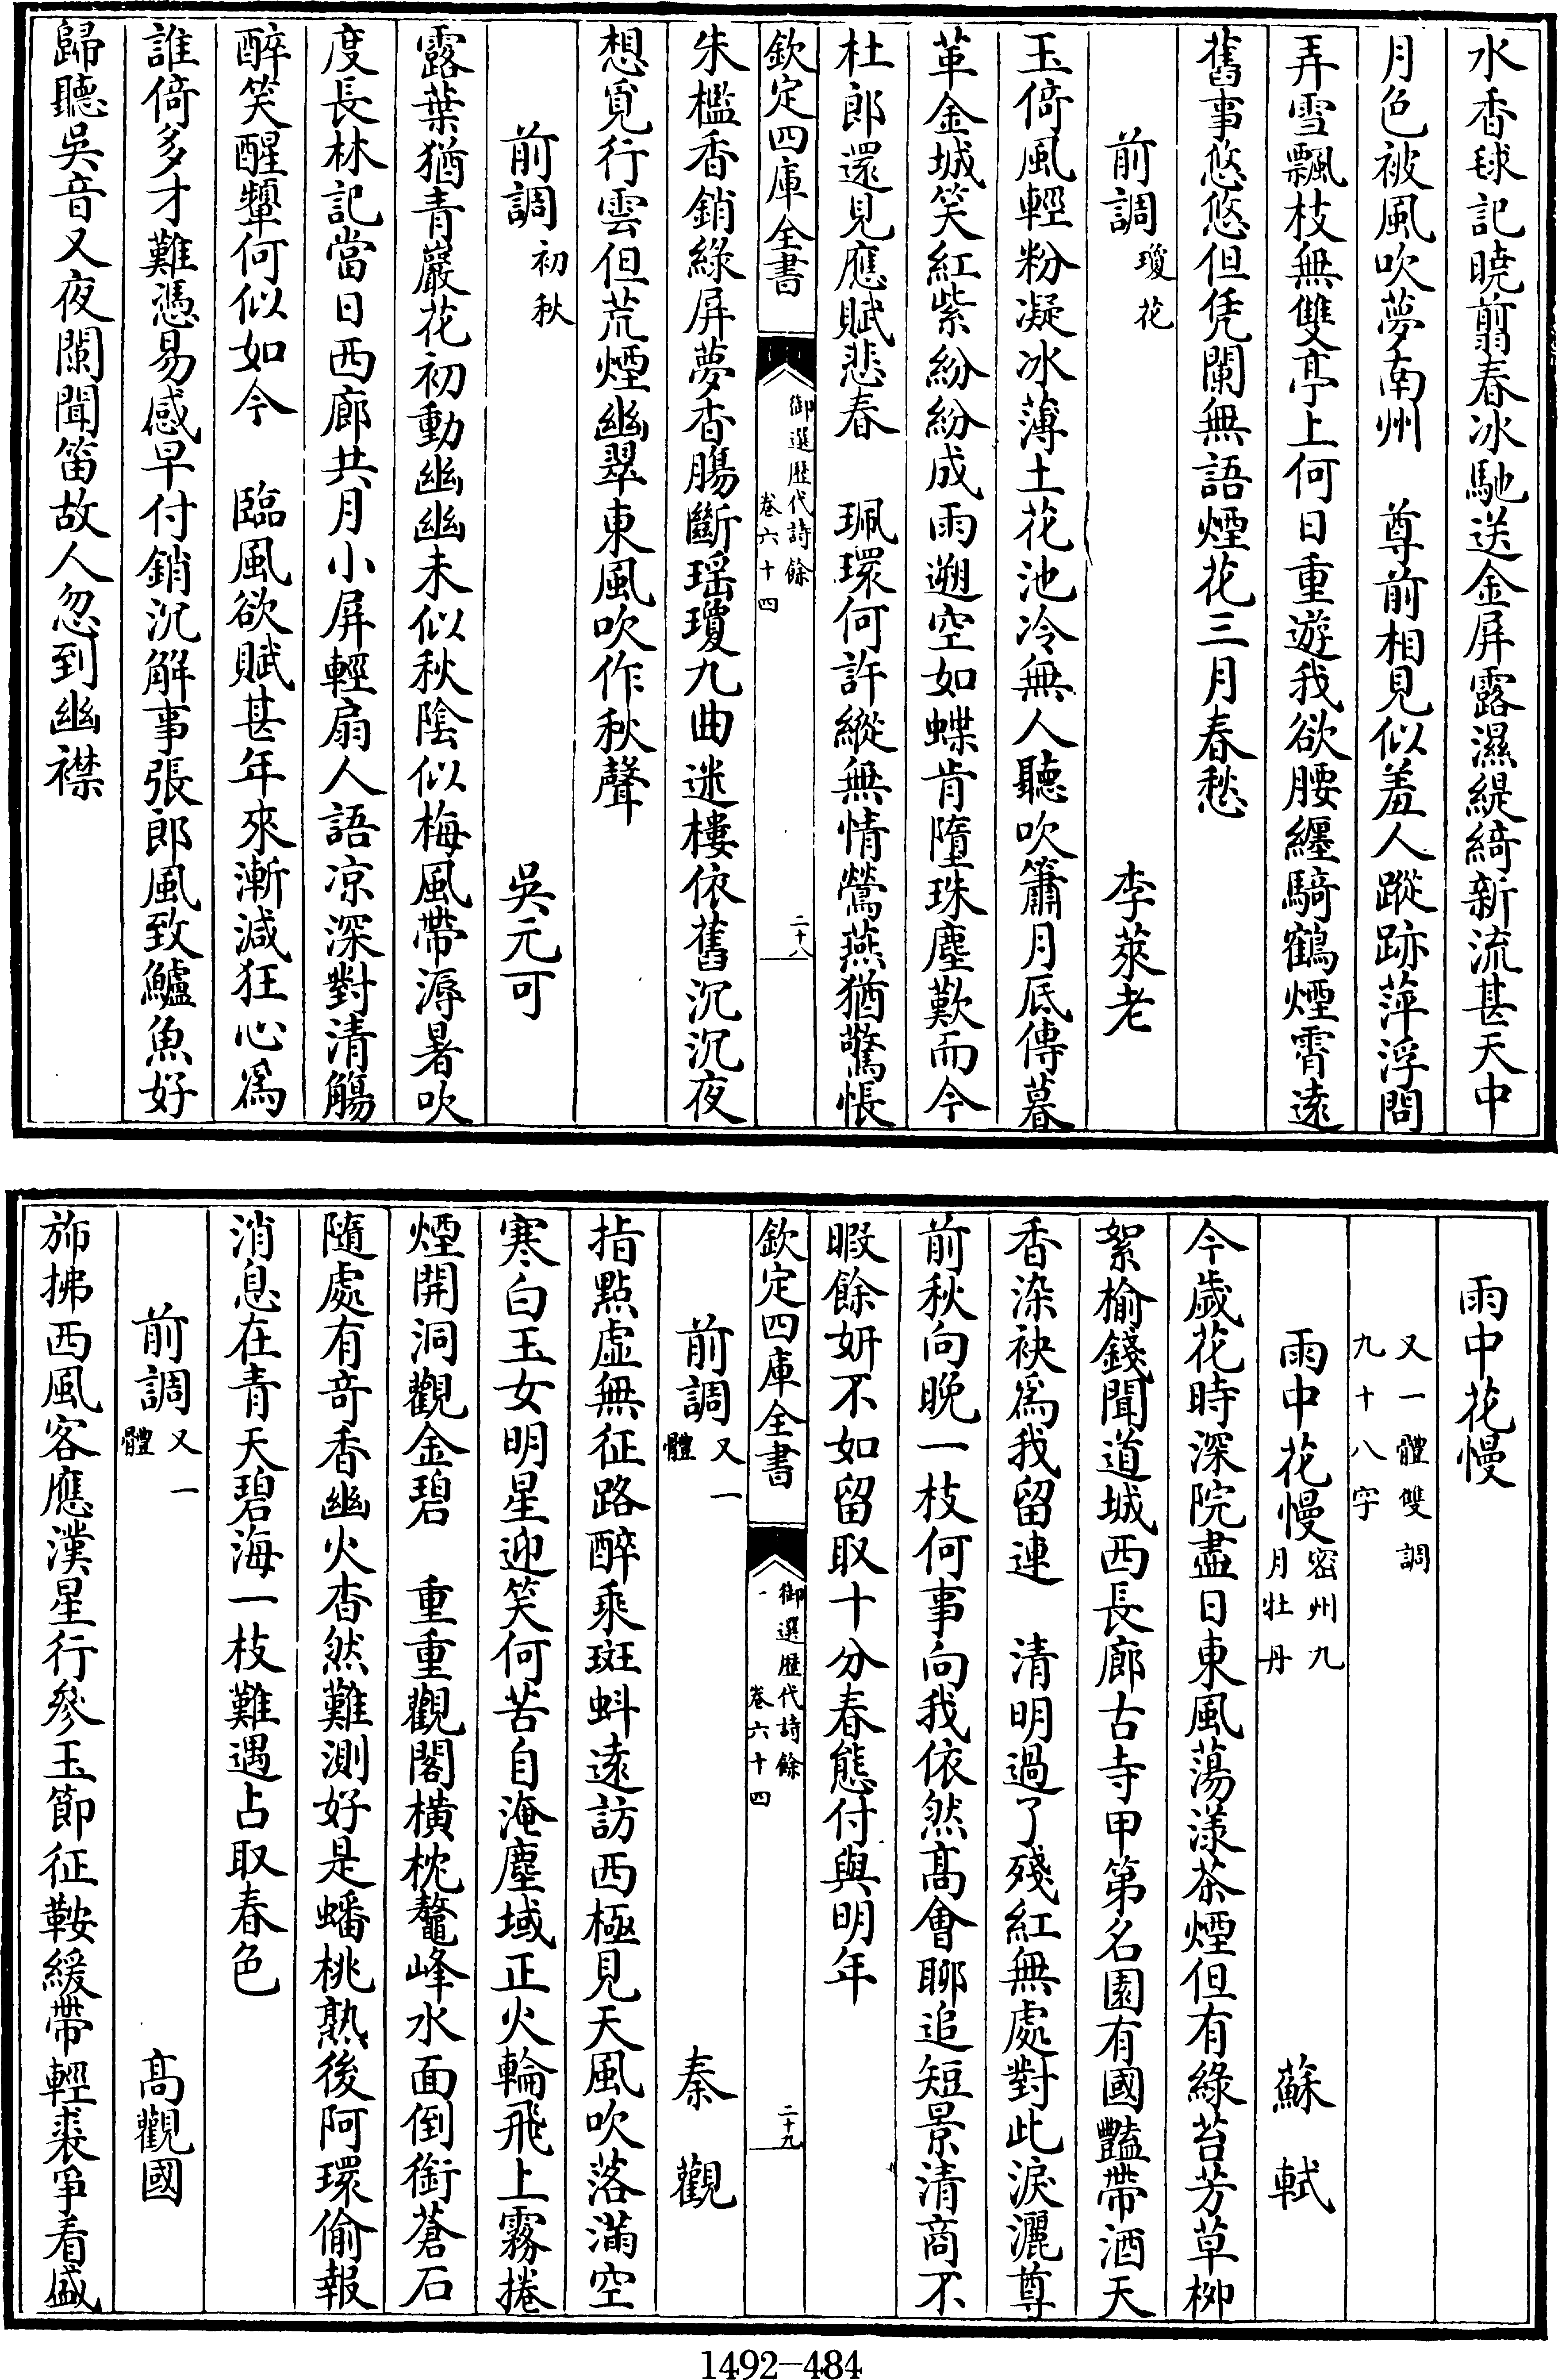 水香毬記曉翦春冰馳送金屏露濕緹綺新流甚天中
月色被風吹夢南州　尊前相見似羞人蹤跡萍浮問
弄雪飄枝無雙亭上何日重遊我欲腰纏騎鶴煙霄遠
舊事悠悠但凭闌無語煙花三月春愁
前調瓊花　李萊老
玉倚風輕粉凝冰薄土花池冷無人聽吹簫月底傳暮
革金城笑紅紫紛紛成雨遡空如蝶肯墮珠塵歎而今
杜郎還見應賦悲春　珮環何許縱無情鶯燕猶驚悵
欽定四庫全書
御選歷代詩餘
卷六十四
二十八
朱檻香銷綠屏夢杳腸斷瑶瓊九曲迷樓依舊沉沉夜
想覓行雲但荒煙幽翠東風吹作秋聲
前調初秋　吳元可
露葉猶青巖花初動幽幽未似秋陰似梅風帶溽暑吹
度長林記當日西廊共月小屏輕扇人語凉深對清觴
醉笑醒顰何似如今　臨風欲賦甚年來漸減狂心爲
誰倚多才難憑易感早付銷沉解事張郎風致鱸魚好
歸聽吳音又夜闌聞笛故人忽到幽襟
雨中花慢
又一體雙調
九十八字
雨中花慢密州九月牡丹　蘇軾
今歲花時深院盡日東風蕩漾茶煙但有綠苔芳草柳
絮榆錢聞道城西長廊古寺甲第名園有國豔帶酒天
香染袂爲我留連　清明過了殘紅無處對此淚灑尊
前秋向晚一枝何事向我依然髙會聊追短景清商不
暇餘妍不如留取十分春態付與明年
欽定四庫全書
御選歷代詩餘
卷六十四
二十九
前調又一體　秦觀
指點虛無征路醉乘斑蚪遠訪西極見天風吹落滿空
寒白玉女明星迎笑何苦自淹塵域正火輪飛上霧捲
煙開洞觀金碧　重重觀閣橫枕鼇峰水面倒銜蒼石
隨處有竒香幽火杳然難測好是蟠桃熟後阿環偷報
消息在青天碧海一枝難遇占取春色
前調又一體　髙觀國
斾拂西風客應漢星行參玉節征鞍緩帶輕裘爭看盛
1492—484